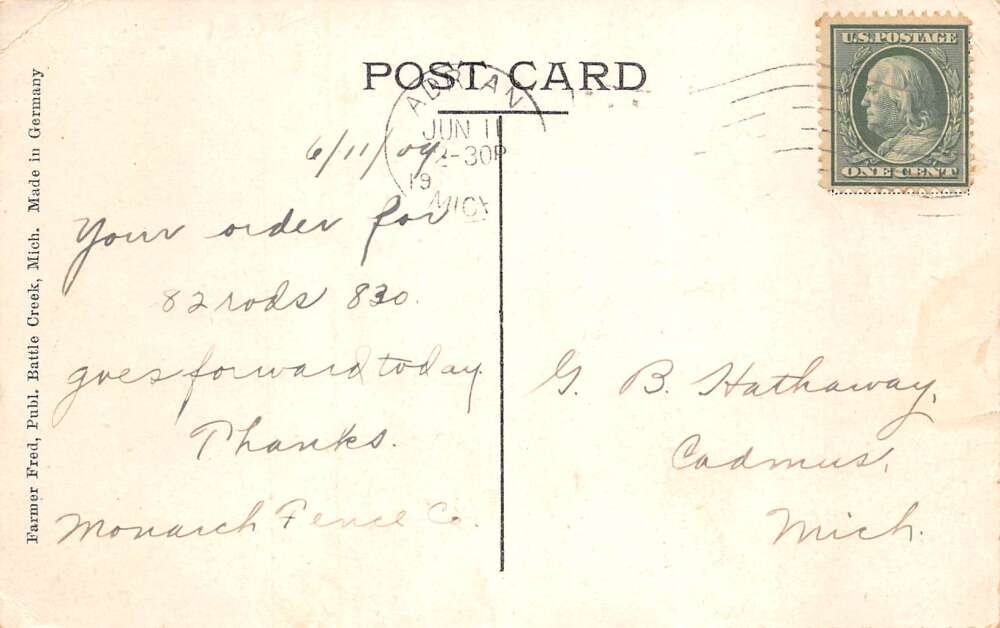 POST CARD
U.S. POSTAGE
ONE CENT
ADRIAN
JUN 11
2-30P
19
MICH
6/11/09
Your order for
82 rods 830.
goes forward today.
Thanks.
Monarch Fence Co.
G. B. Hathaway,
Cadmus,
Mich.
Farmer Fred, Publ. Battle Creek, Mich. Made in Germany